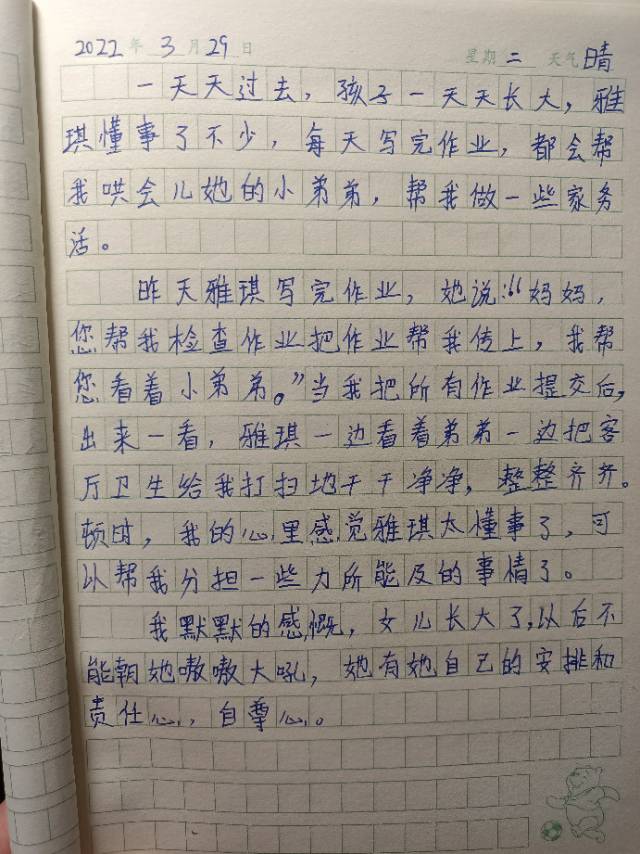 2022年3月29日 星期二 天气晴
一天天过去，孩子一天天长大，雅
琪懂事了不少，每天写完作业，都会帮
我哄会儿她的小弟弟，帮我做一些家务
活。
昨天雅琪写完作业，她说:“妈妈，
您帮我检查作业把作业帮我传上，我帮
您看着小弟弟。”当我把所有作业提交后，
出来一看，雅琪一边看着弟弟一边把客
厅卫生给我打扫地干干净净，整整齐齐。
顿时，我的心里感觉雅琪太懂事了，可
以帮我分担一些力所能及的事情了。
我默默的感慨，女儿长大了，以后不
能朝她嗷嗷大吼，她有她自己的安排和
责任心，自尊心。